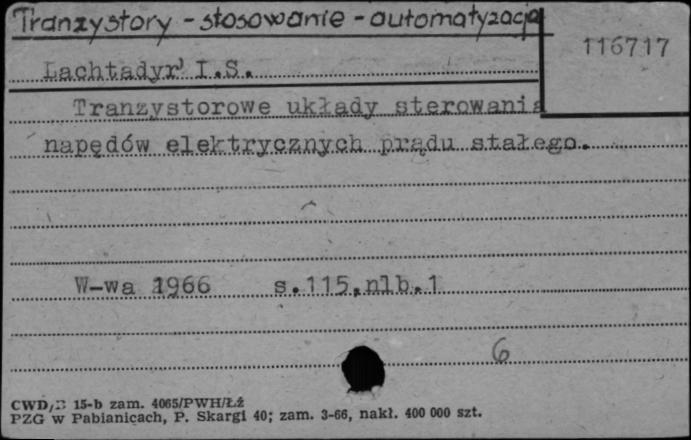 Tranzystory - stosowanie - automatyzacja
116717
Lachtadyr' I.S.
Tranzystorowe układy sterowania
napędów elektrycznych prądu stałego.
W-wa 1966 s.115,nlb.1
6
CWD/ 15-b zam. 4065/PWH/Łź
PZG w Pabianicach, P. Skargi 40; zam. 3-66, nakł. 400 000 szt.